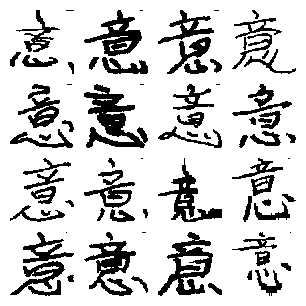 意意意意
意意意意
意意意意
意意意意